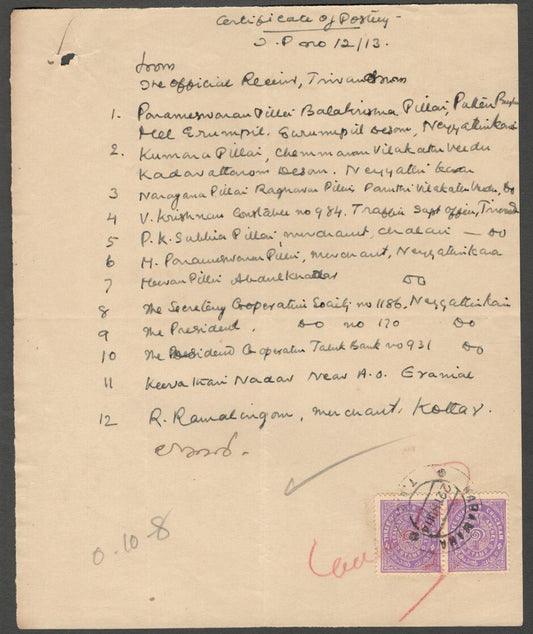 Certificate of Posting
I.P no 12/13.
from
The official Receiver, Trivandrum
1. Parameswaran Pillai Balakrishna Pillai, Puthen
Mel Erumpil. Gurumpil Desom, Neyyattinkara
2. Kumara Pillai, Chemmaram Vilakathu Veedu
Kadavattarom Desom. Neyyattinkara
3 Narayana Pillai Raghavan Pillai Vilakathu Veedu, Do
4 V. Krishnan Constable no 984. Traffic Supt office, Trivandrum
5 P. K. Subbia Pillai, merchant, Chalai - Do
6 M. Parameswaran Pillai, merchant, Neyyattinkara
7 Meeran Pillai Abdul Khadar Do
8 The Secretary Cooperative Society no 1186, Neyyattinkara
9 The President. Do no 170 Do
10 The President Cooperative Taluk Bank no 931 Do
11 Nadar Near A.O. Eraniel
12 R. Ramalingom, merchant, Kottar.
0.10.8
KARAMANA